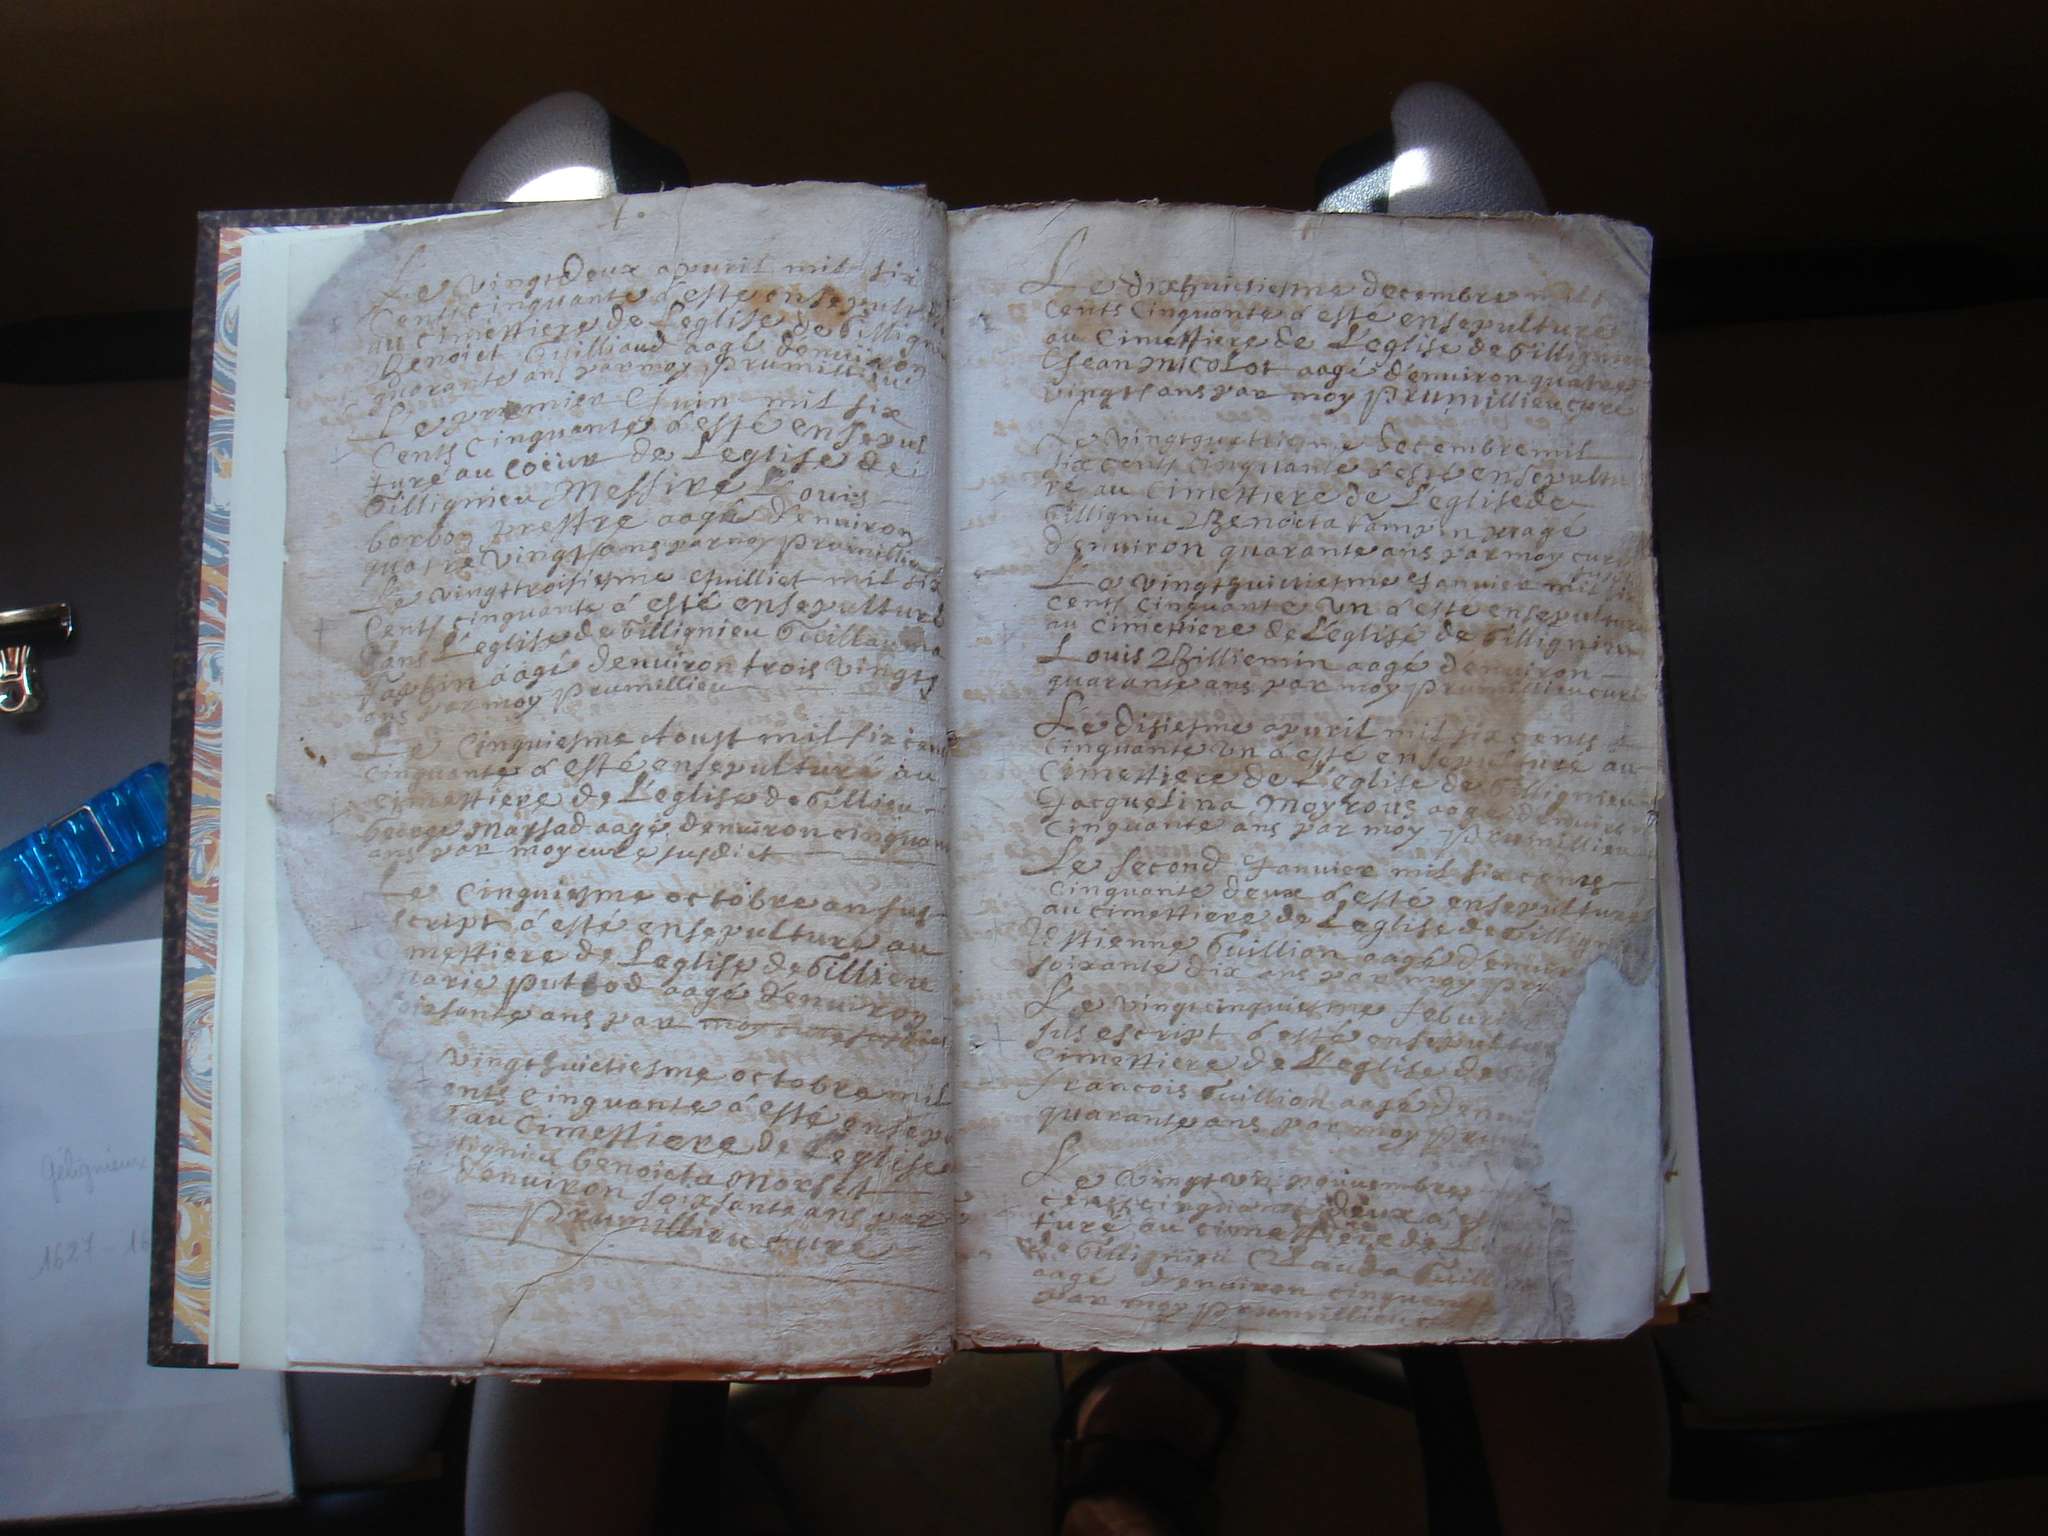 Le vingtdeux apuril mil six
Cents cinquante á esté ensepult
au cimettiere de L'eglise de Gillignieu
Benoict Guilliaud aagé d'enuiron
quarante ans par moy Prumillieu
Le premier Juin mil six
Cents Cinquante á esté ensepul
turé au coëur de L'eglise de
Gillignieu Messire Louis
borbon prestre aagé d'enuiron
quatre vingts ans par moy Prumillieu
Le vingttroisiesme Juilliet mil six
Cents cinquante á esté ensepulturé
dans L'eglise de Gillignieu Guillauma
aagé denuiron trois vingts
ans par moy Prumellieu
Le Cinquiesme Aoust mil six cents
cinquante á esté ensepulturé au
cimettiere de L'eglise de Gillieu
George Marsad aagé denuiron cinquan
ans par moy curé susdict
Le Cinquiesme octobre an sus
script á esté ensepulturé au
mettiere de L'eglise de Gilliere
marie Puthod aagé d'enuiron
soixsante ans par moy curé susdict
vingthuictiesme octobre mil
ents Cinquante á esté ensepu
au Cimettiere de L'eglise
lignieu benoicta Morset
d'enuiron soixsante ans par
Prumillieu curé
Le dixhuictiesme decembre mil
Cents Cinquante á esté ensepulturé
au Cimettiere de L'eglise de Gillignieu
Jean Nicolot aagé d'enuiron quatre
vingts ans par moy Prumillieu curé
Le vingtquattriesme decembre mil
six cents cinquante á esté ensepultu
ré au cimettiere de L'eglise de
Gilligniu Benoicta aagé
d'enuiron quarante ans par moy curé
Le vingthuictiesme Januier mil six
cents cinquante vn á esté ensepulturé
au cimettiere de L'eglisé de Gillignieu
Louis Billiemin aagé d'enuiron
quarante ans par moy Prumillieu curé
Le disiesme apuril mil six cents
cinquante vn á esté ensepulturé au
Cimettiere de L'eglise de Gillignieu
Jacquelina Moyrous aagé denuiron
cinquante ans par moy Prumillieu
Le second Januier mil six cents
cinquante deux á esté ensepulturé
au cimettiere de L'eglise de Gillignieu
Estienne Guillion aagé d'enuir
soixante dix ans par moy Pru
Le vingtcinquiesme feburi
sus escript á esté ensepultu
cimettiere de L'eglise de Gill
francois Guillion aagé d'enui
quarante ans par moy Pru
Le vingt vn nouuembre
cents cinquante deux á es
turé au cimettiere de L'e
de Gillignieu Clauda Guilli
aagé d'enuiron cinquante
par moy Prumillieu
Gélignieux
1627 - 16